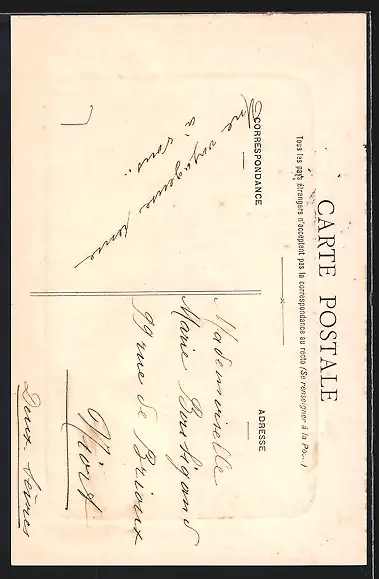 CARTE POSTALE
Tous les pays étrangers n'acceptent pas la correspondance au recto (Se renseigner à la Po...)
CORRESPONDANCE
ADRESSE
Une voyageuse pense
à vous.
Mademoiselle
Marie
99 rue de Brioux
Niort
Deux-Sèvres